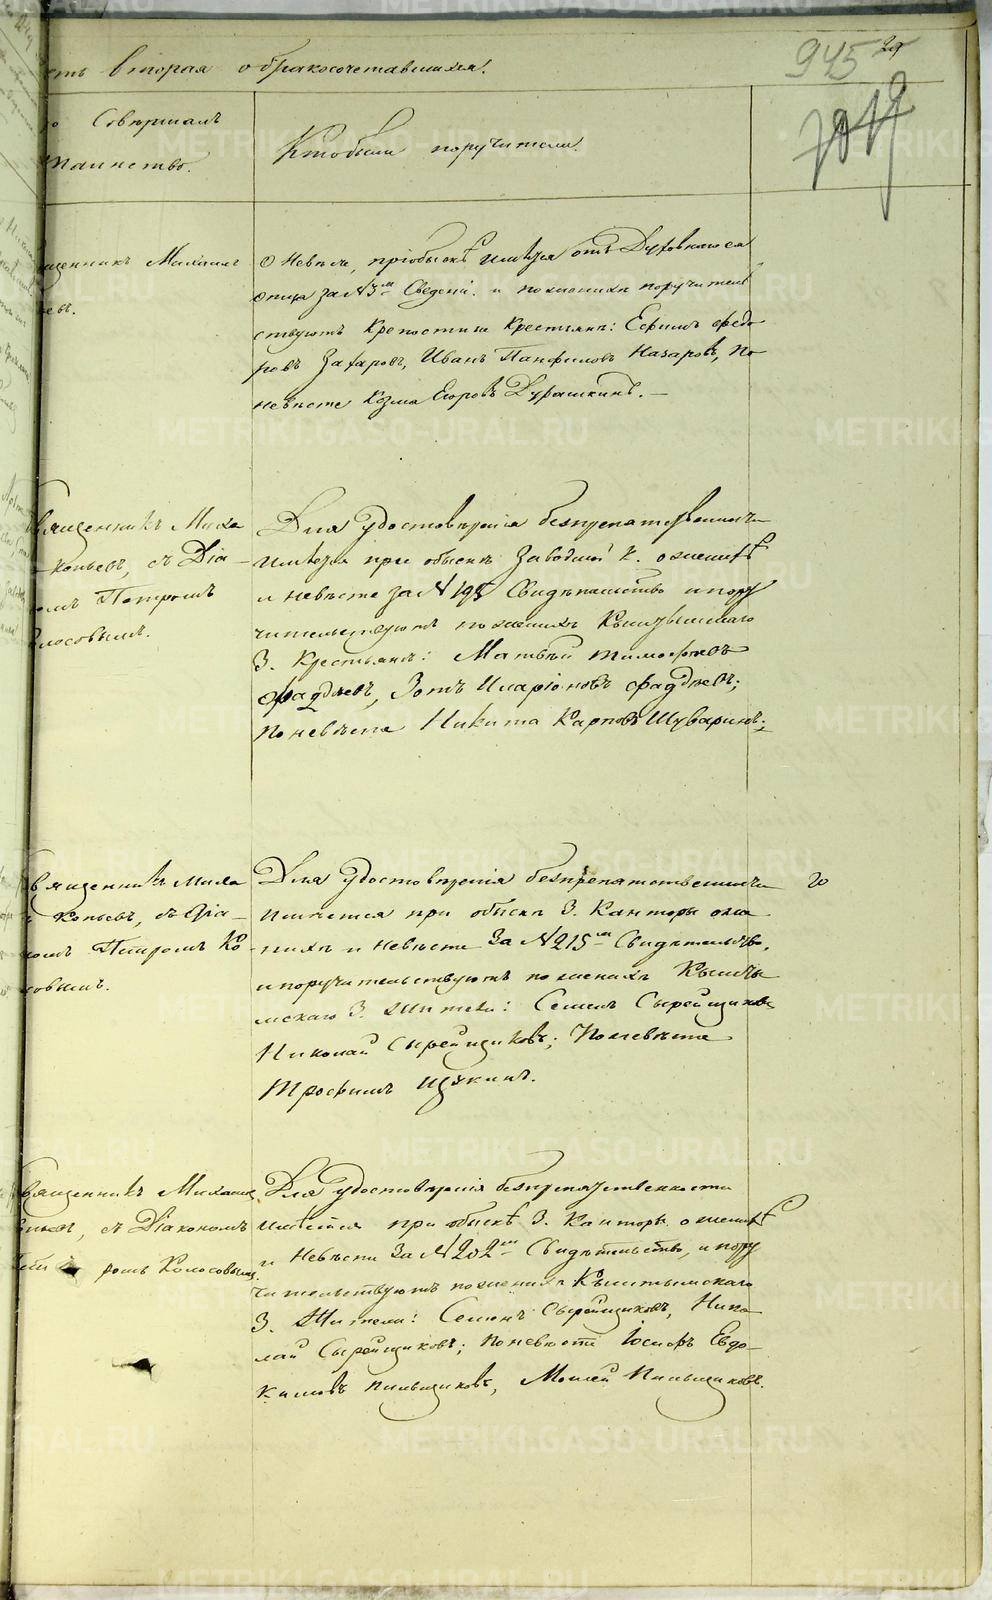 сть вторая о бракосочетавшихся.
945
29
1019
Совершалъ
таинство.
Кто были поручители.
щенникъ Михаилъ
евъ.
О Невѣсте, при обыскѣ имѣется отъ Духовнаго ея
отца за №3м Сведенi. и по женихѣ поручитель
ствуютъ крепостныи крестьяне: Ефимъ Федо
ровъ Захаровъ, Иванъ Панфиловъ Назаровъ, по
невѣсте Козма Егоровъ Дурашкинъ.
вященникъ Миха
Копьевъ, съ Діа-
номъ Петромъ
лосовымъ.
Для удостовѣренія безпрепятственности
имѣется при обыскѣ Заводской К. о женихѣ
и невѣсте за №195 Свидѣтельство и пору
чительствуютъ по женихѣ Кыштымскаго
З. Крестьяне: Матвѣй Тимофеевъ
Фаддѣевъ, Зотъ Иларіоновъ Фаддѣевъ;
по невѣсте Никита Карповъ Шуваринъ.
вященникъ Миха
Копьевъ, съ Діа-
номъ Петромъ Ко
совымъ.
Для удостовѣренія безпрепятственности
имѣется при обыскѣ З. Канторы о же
нихѣ и невѣсте за №215м Свидѣтельство,
и поручительствуютъ по женихѣ Кышты
мскаго З. Жители: Семенъ Сырейщиковъ
Николай Сырейщиковъ; По невѣсте
Трофимъ Щукинъ.
20
вященникъ Михаил
пьевъ, съ Діакономъ
Пет ромъ Колосовымъ.
Для удостовѣренія безпрепятственности
имѣется при обыскѣ З. Канторы о женихѣ
и Невѣсте за №202м Свидѣтельство, и пору
чительствуютъ по женихѣ Кыштымскаго
З. Жители: Семенъ Сырейщиковъ, Нико
лай Сырейщиковъ; по невѣсте Іосифъ Евдо-
кимовъ Пильщиковъ, Моисей Пильщиковъ.
METRIKI.GASO-URAL.RU